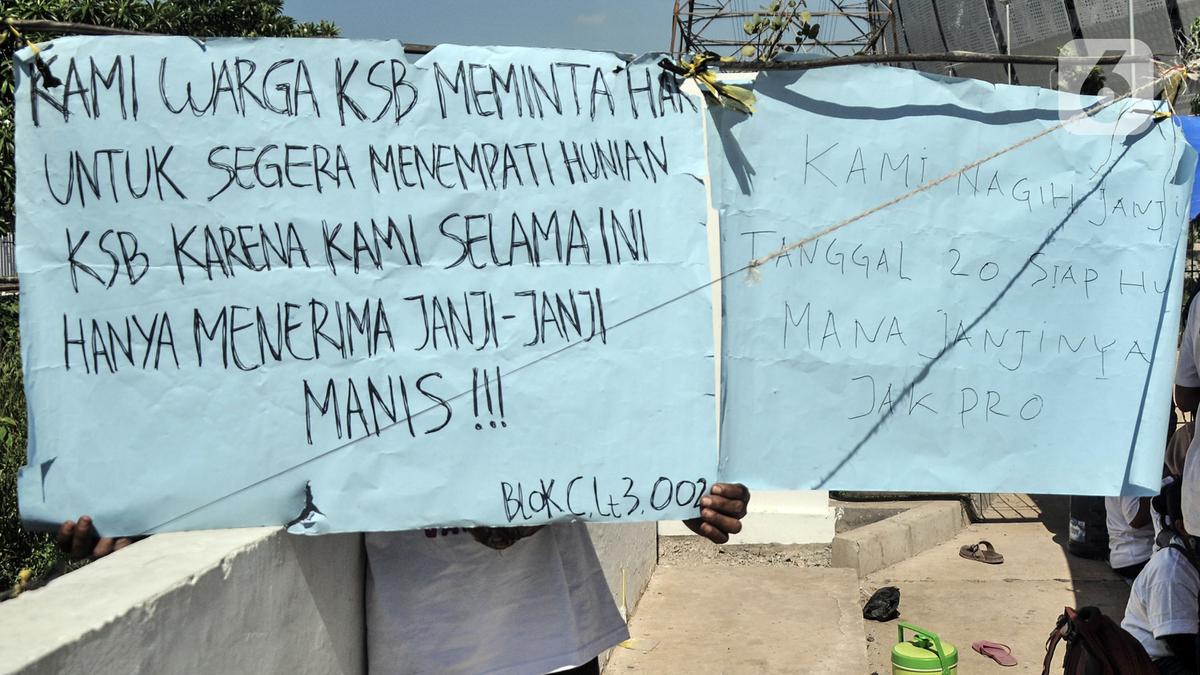 KAMI WARGA KSB MEMINTA HAK
UNTUK SEGERA MENEMPATI HUNIAN
KSB KARENA KAMI SELAMA INI
HANYA MENERIMA JANJI-JANJI
MANIS !!!
BLOK C, Lt 3. 002
KAMI NAGIH JANJI
TANGGAL 20 SIAP HU
MANA JANJINYA
JAK PRO